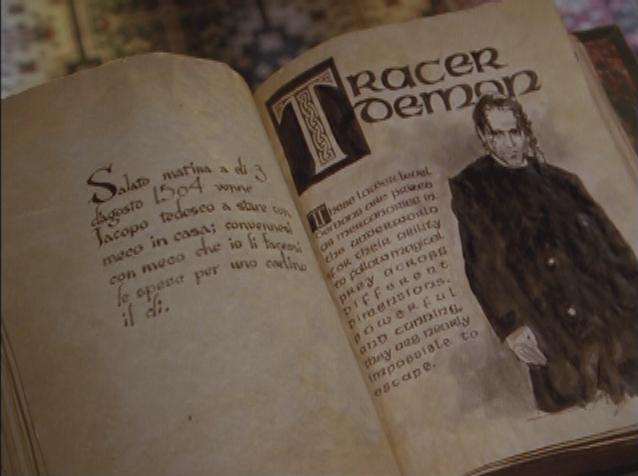 Salato matina a di 3
dagosto 1504 venne
Jacopo tedesco a stare con
meco in casa; convennesi
con meco che io li facessi
le spese per uno carlino
il di.
TRACER
DEMON
These lower level
demons are prized
as mercenaries in
the underworld
for their ability
to follow magical
prey across
different
dimensions.
Powerful
and cunning,
they are nearly
impossible to
escape.